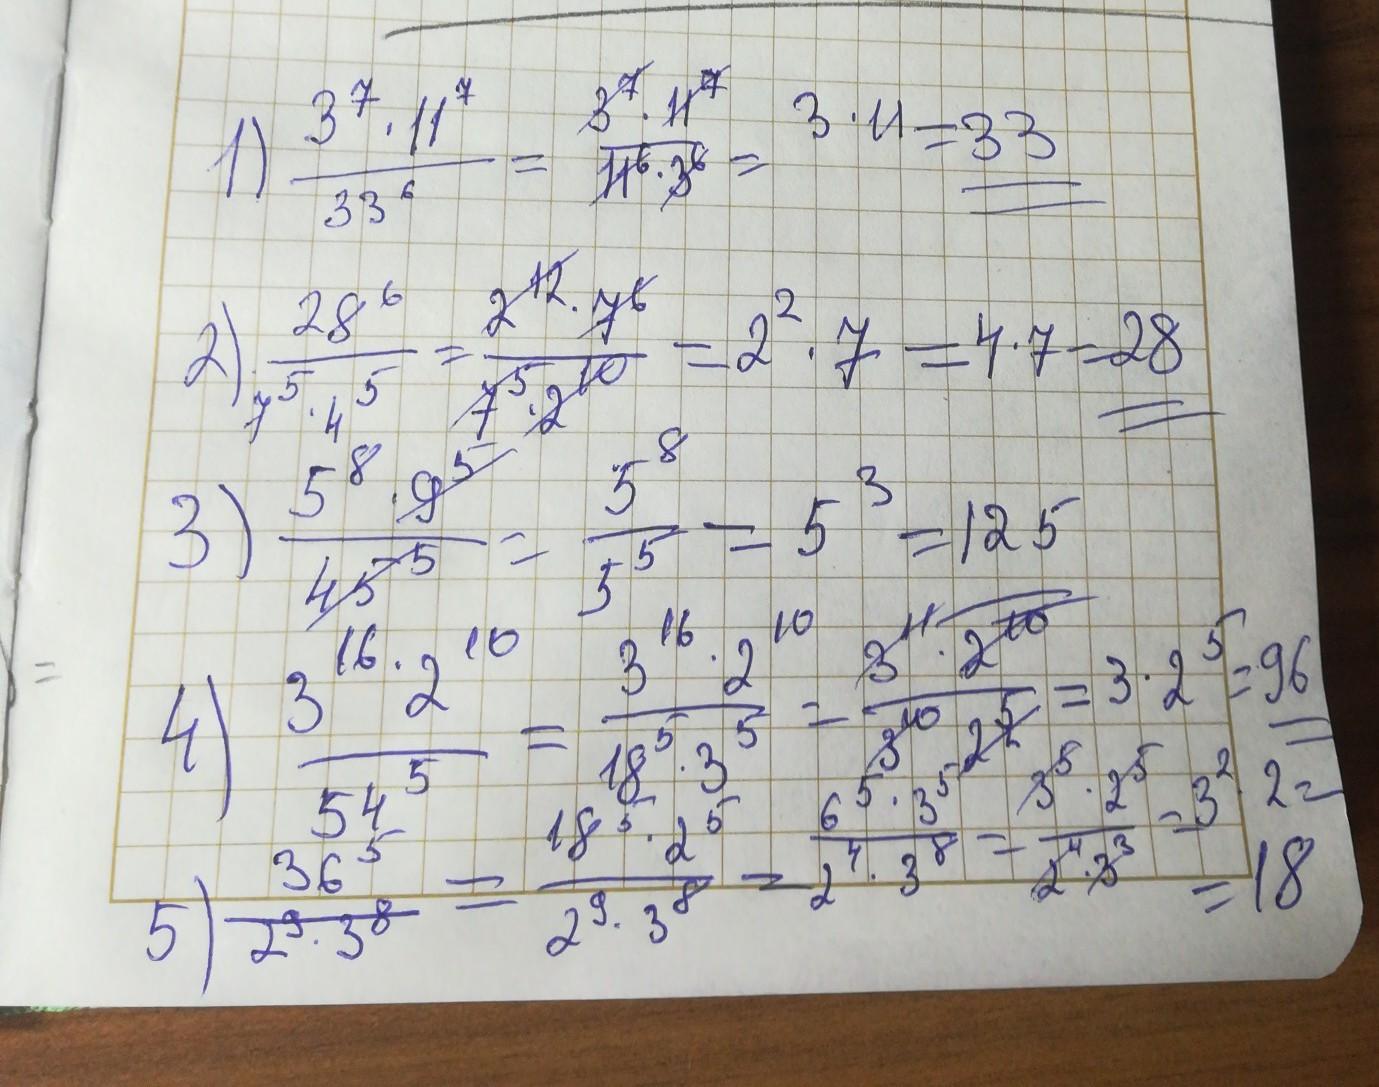 1) 3^7 · 11^7 / 33^6 = 3^7 · 11^7 / 11^6 · 3^6 = 3 · 11 = 33
2) 28^6 / 7^5 · 4^5 = 2^12 · 7^6 / 7^5 · 2^10 = 2^2 · 7 = 4 · 7 = 28
3) 5^8 · 9^5 / 45^5 = 5^8 / 5^5 = 5^3 = 125
4) 3^16 · 2^10 / 54^5 = 3^16 · 2^10 / 18^5 · 3^5 = 3^11 · 2^10 / 3^10 2^5 = 3 · 2^5 = 96
5) 36^5 / 2^9 · 3^8 = 18^5 · 2^5 / 2^9 · 3^8 = 6^5 · 3^5 / 2^4 · 3^8 = 3^5 · 2^5 / 2^4 · 3^3 = 3^2 · 2 =
= 18
=